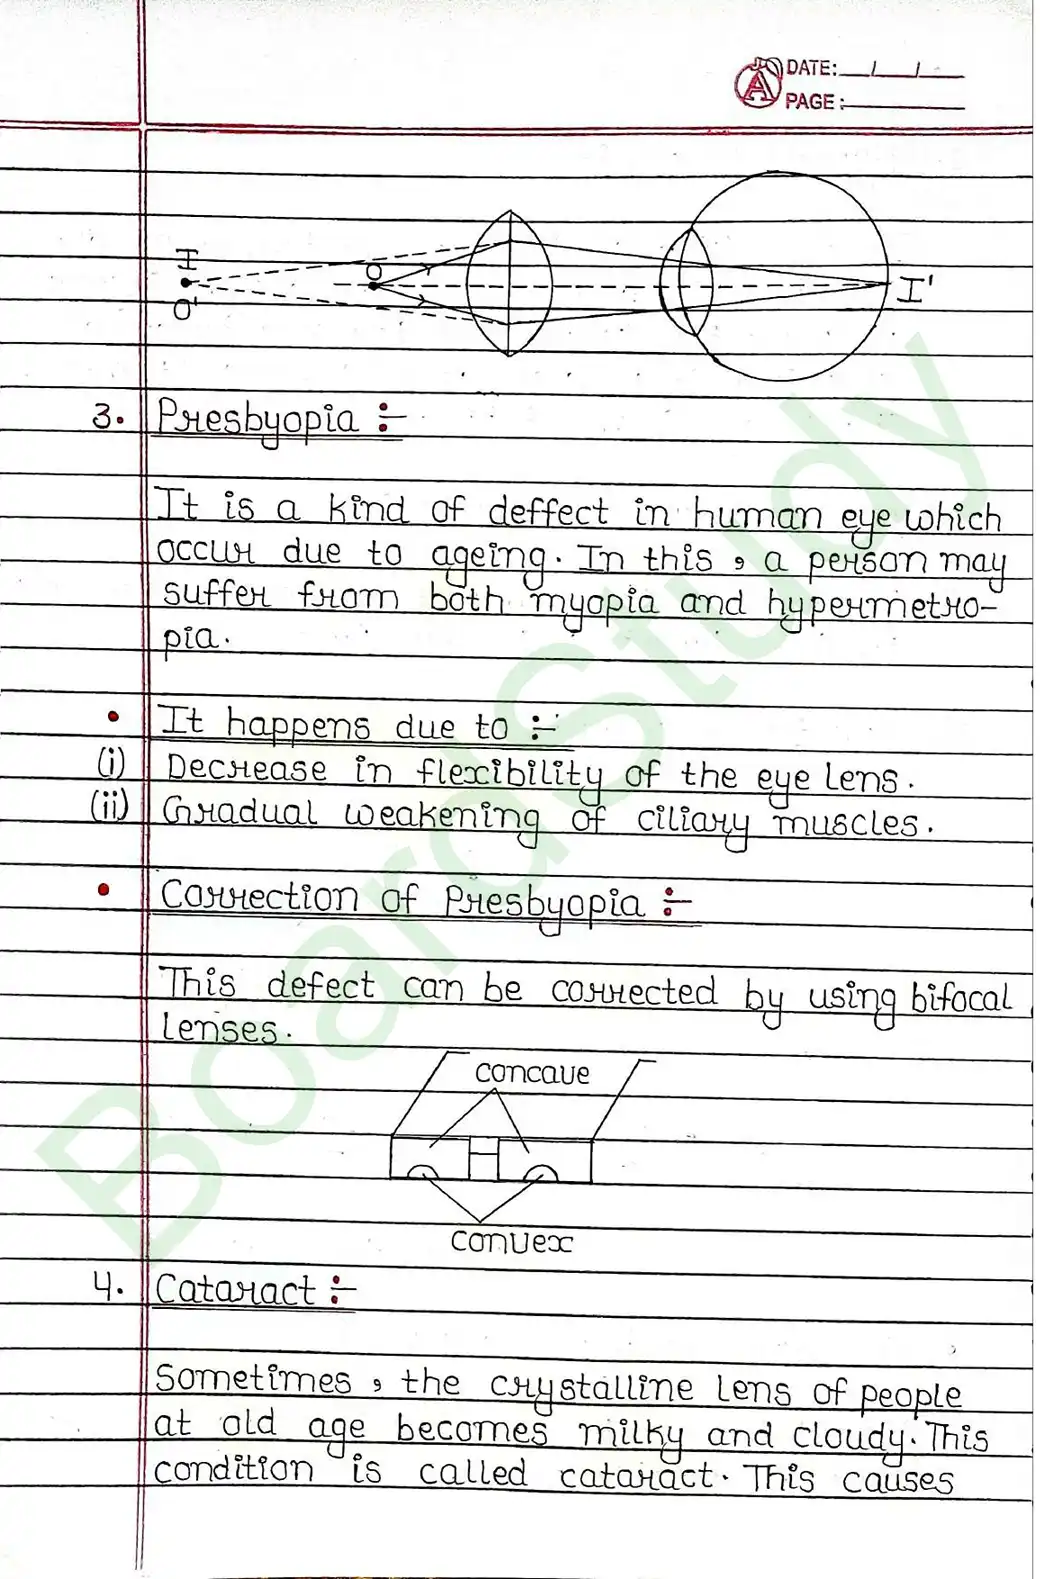 DATE: __/__/__
PAGE: ______
I
O
O'
I'
3. Presbyopia :-
It is a kind of deffect in human eye which
occur due to ageing. In this, a person may
suffer from both myopia and hypermetro-
pia.
• It happens due to :-
(i) Decrease in flexibility of the eye lens.
(ii) Gradual weakening of ciliary muscles.
• Correction of Presbyopia :-
This defect can be corrected by using bifocal
lenses.
concave
convex
4. Cataract :-
Sometimes, the crystalline lens of people
at old age becomes milky and cloudy. This
condition is called cataract. This causes
BoardStudy